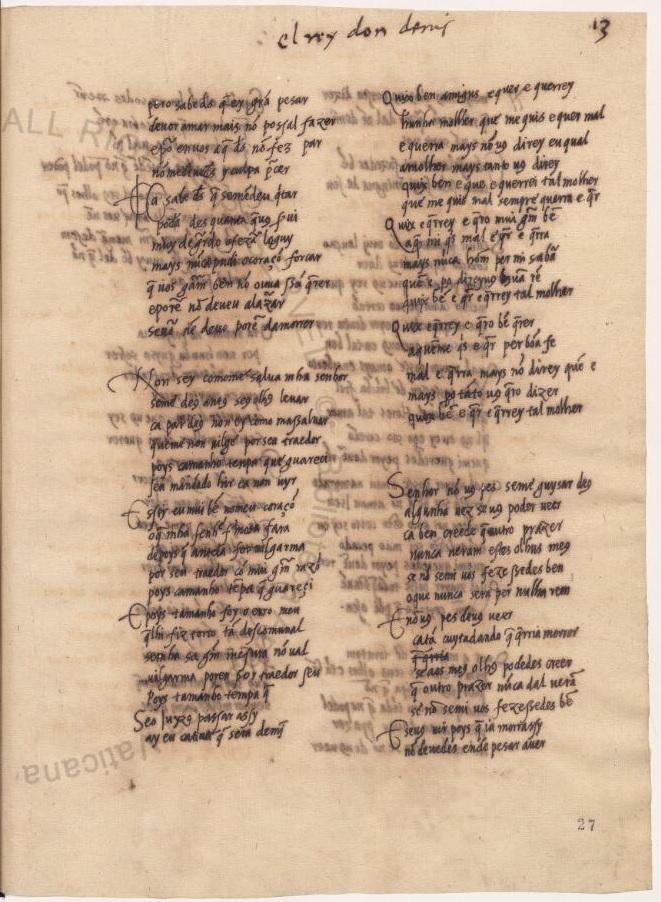 el rey don denis
13
pero sabe ds̄ q̄ ey grã pesar
deuor amar mais nõ possal fazer
e ds̄ en uos a q̄ ds̄ nõ fez par
nõ me culpa
Ca sabe ds̄ q̄ se me deu q̄tar
des quanta q̄ uꝯ serui
muy de grado o fezera loguy
mays nũca pudi o coraçõ forcar
q̄ uos gram ben nõ ouuessa q̄rer
e porẽ nõ deueu a lazrar
senõr nẽ deuo porẽ da morrer
Non sey como me salua mha senhor
se me deꝯ ante seꝯ olhꝯ leuar
ca par deꝯ non ey como massaluar
que me non iulgꝯ por seu traedor
poys camanho tenpa que guareci
sen mandado hir ca non uyr
E sey eu mui bẽ no meu coraçõ
o q̄ mha senhor fremosa fara
depoys q̄ ante la for iulgarma
por seu traedor cõ mui grã razõ
poys camanho tẽpa q̄ guareçi
E poys tamanho foy o erro meu
q̄ lhi fiz torto tã descomunal
se mha sa grã mesura nõ ual
iulgarma poren por traedor seu
Poys tamanho tempa q̄
Seo iuyzo passar assy
ay eu catiuꝯ q̄ sera demỹ
Quix ben amigus e quer e querrey
hunha molher que me quis e quer mal
e querra mays nõ uꝯ direy eu qual
a molher mays tanto uꝯ direy
quix ben e que e querrei tal molher
que me quis mal sempre querra e q̄r
Quix e q̄rrey e q̄ro mui grã bẽ
a q̄ mi q̄s mal e q̄r e q̄rra
mays nũca hom̃ per mi sabã
quẽ e po direyuꝯ hũa rẽ
quix bẽ e q̄r e q̄rrey tal molher
Quix e q̄rrey e q̄ro bẽ q̄rer
a quẽ me q̄s e q̄r per bõa fe
mal e q̄rra mays nõ direy quẽ e
mays po tãto uꝯ q̄ro dizer
quix bẽ e q̄r e q̄rrey tal molher
Senhor nõ uꝯ pes se me guysar deꝯ
algunha uez se uꝯ poder ueer
ca ben creede q̄ outro prazer
nunca ueram estes olhus meꝯ
se nõ se mi uos fezessedes ben
o que nunca sera per nulha rem
E nõ uꝯ pes de uꝯ ueer
ca tã cuytadando q̄ q̄rria morrer
q̄ q̄rria
se aos meꝯ olhꝯ podedes creer
q̄ outro prazer nũca dal uerã
se nõ se mi uos fezessedes bẽ
E se uꝯ uir poys q̄ ia moirassy
nõ deuedes ende pesar auer
27